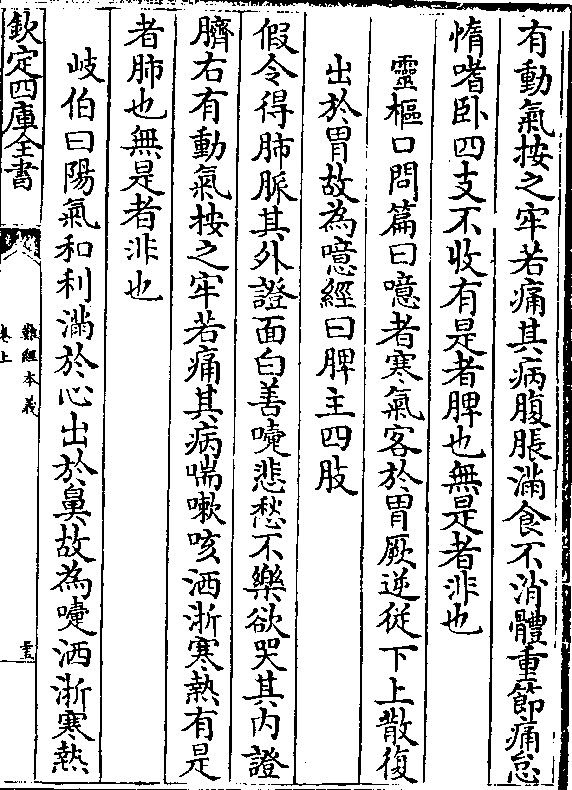 有動氣按之牢若痛其病腹脹滿食不消體重節痛怠
惰嗜卧四支不收有是者脾也無是者非也
靈樞口問篇曰噫者寒氣客於胃厥逆從下上散復
出於胃故為噫經曰脾主四肢
假令得肺脈其外證面白善嚏悲愁不樂欲哭其内證
臍右有動氣按之牢若痛其病喘嗽咳洒淅寒熱有是
者肺也無是者非也
岐伯曰陽氣和利滿於心出於鼻故為嚏洒淅寒熱
欽定四庫全書
難經本義
卷上